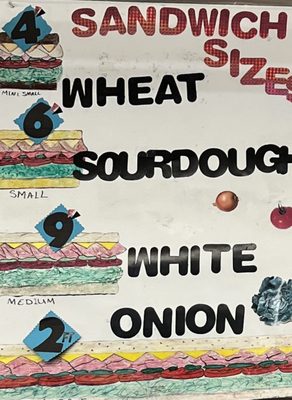 SANDWICH
SIZES
4"
MINI SMALL
WHEAT
6"
SMALL
SOURDOUGH
9"
MEDIUM
WHITE
ONION
2 FT